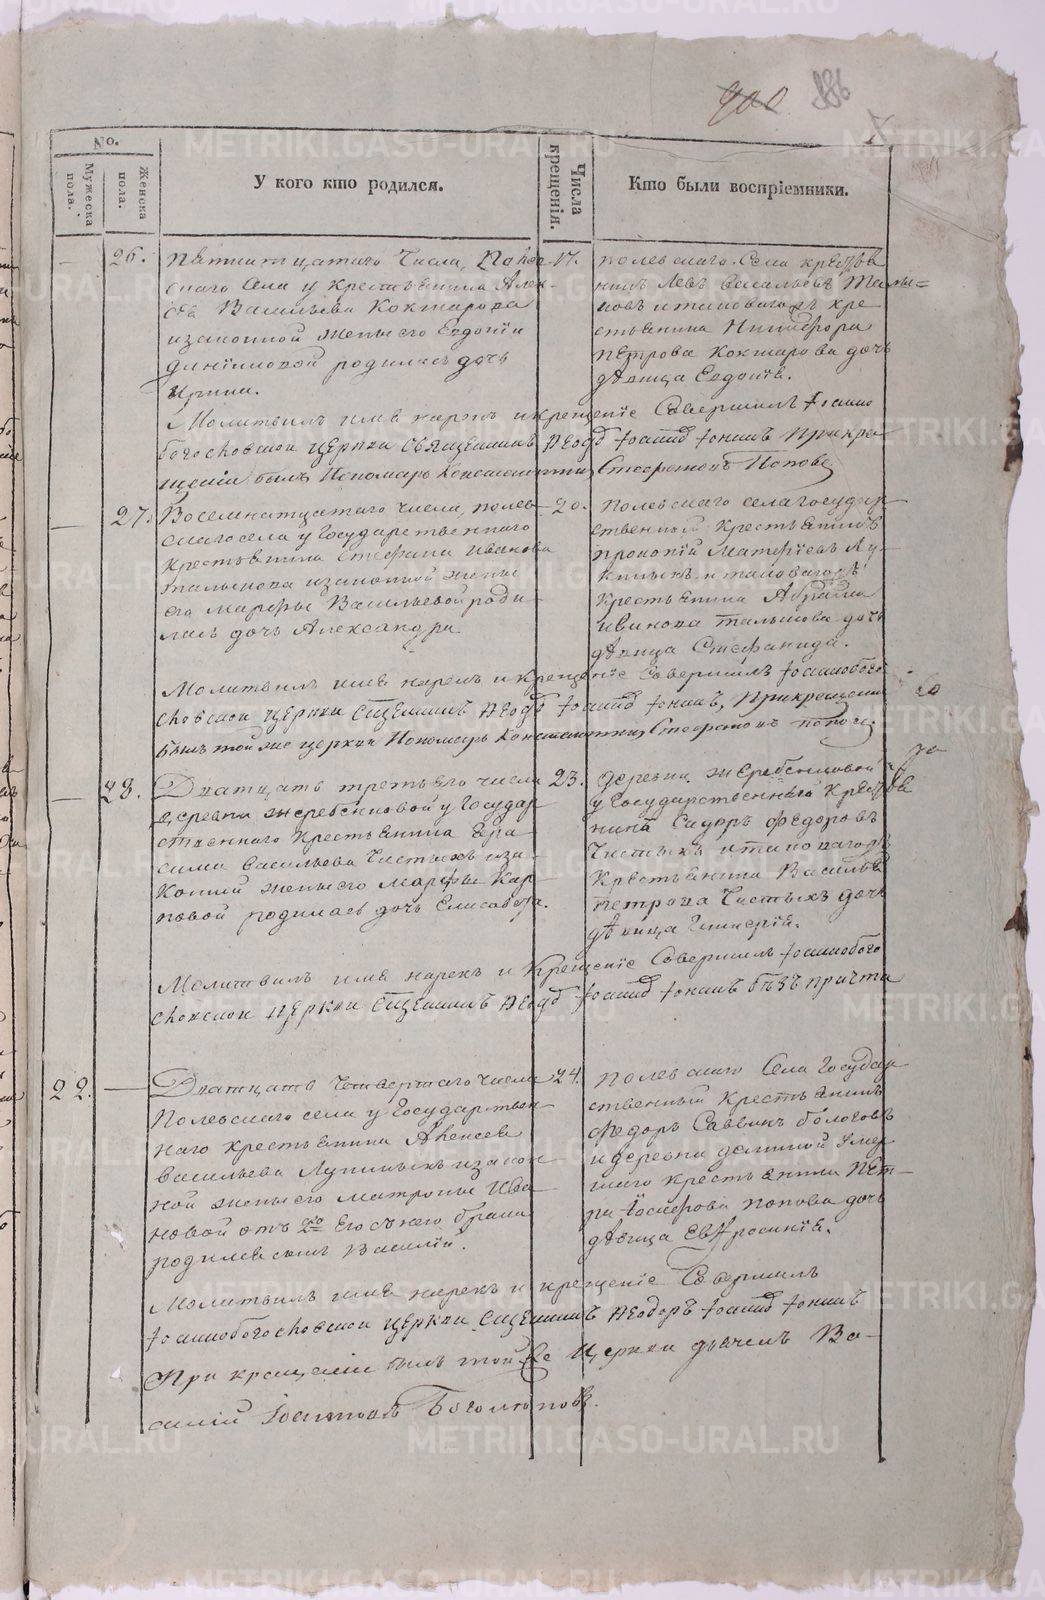 400 886
No.
Мужеска пола.
Женска пола.
У кого кто родился.
Числа крещенія.
Кто были воспріемники.
26.
Пятнатцатаго Числа, Полев
скаго Села у крестьянина Алек-
Васильева Кокшарова
изаконной жены его Евдокіи
родилась дочь
Ирина.
17.
полевскаго Села крестья
нинъ Левъ Васильевъ Талы=
новъ итаковагожъ кре
стьянина Никифора
Петрова Кокшарова дочь
дѣвица Евдокія.
Молитвилъ имя нарекъ и крещеніе Совершилъ Іоанно
богословской церкви Священникъ Ѳеодоръ при кре
щеніи былъ Пономарь Константинъ Стефановъ Поповъ
27.
Восемнатцатаго числа, полев
скаго села у Государственнаго
крестьянина Стефана Иванова
Талынова изаконной жены
его Марфы Васильевой роди
лась дочь Александра
20.
полевскаго села государ
ственный крестьянинъ
прокопій Матфѣевъ Лу-
киныхъ и таковагожъ
крестьянина Абрама
Иванова Талынова дочь
дѣвица Стефанида.
Молитвилъ имя нарекъ и крещеніе Совершилъ Іоаннобого
словской церкви Сщенникъ Ѳеодоръ при крещеніи
былъ той же церкви Пономарь Константинъ Стефановъ поповъ
28.
Дватцать третьяго числа
деревни жребенковой у Государ
ственнаго Крестьянина Гера
сима Васильева Чистыхъ иза-
конной жены его Марфы Кар
повой родилась дочь Елисавета.
23.
деревни
у Государственный Крестья
нинъ Сидоръ Федоровъ
Чистыхъ итаковагожъ
Крестьянина Василья
петрова Чистыхъ дочь
дѣвица Гликерія.
Молитвилъ имя нарекъ и Крещеніе Совершилъ Іоаннобого
словской церкви Сщенникъ Ѳеодоръ безъ причта
22.
Дватцать Четвертаго числа
Полевскаго села у Государствен
наго крестьянина Алексея
Васильева Лукиныхъ изакон
ной жены его Матроны Ива
новой отъ 2го Его съ нею брака
родился сынъ Василій.
24.
полевскаго Села Государ
ственный Крестьянинъ
Федоръ Саввинъ Болотовъ
и деревни умер
шаго крестьянина Пет-
ра Іосифова попова дочь
дѣвица Евфросинія.
Молитвилъ имя нарекъ и крещеніе Совершилъ
Іоаннобогословской церкви Сщенникъ Ѳеодоръ
При крещеніи былъ той же Церкви дьячекъ Ва-
силій Боголюповъ.
METRIKI.GASO-URAL.RU